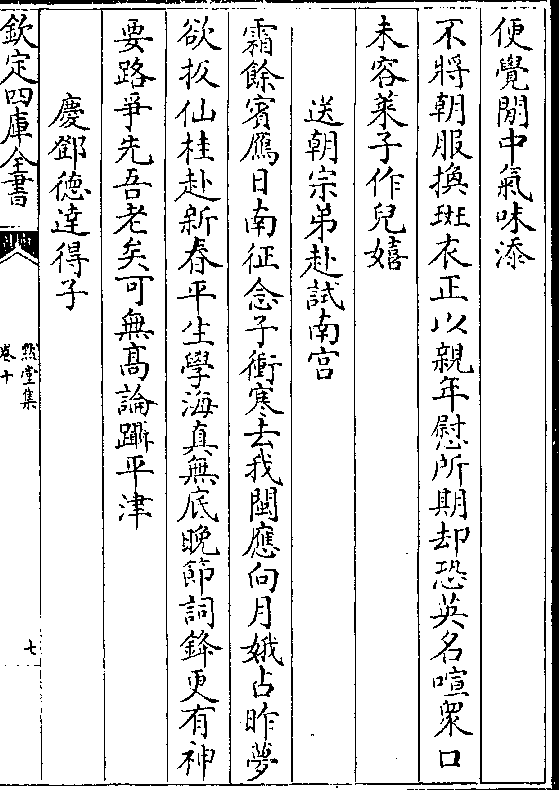 便覺閒中氣味添
不將朝服換斑衣正以親年慰所期却恐英名喧衆口
未容萊子作兒嬉
送朝宗弟赴試南宫
霜餘賓鴈日南征念子衝寒去我閩應向月娥占昨夢
欲扳仙桂赴新春平生學海真無底晚節詞鋒更有神
要路爭先吾老矣可無髙論躡平津
慶鄧德達得子
欽定四庫全書
默堂集
卷十
七